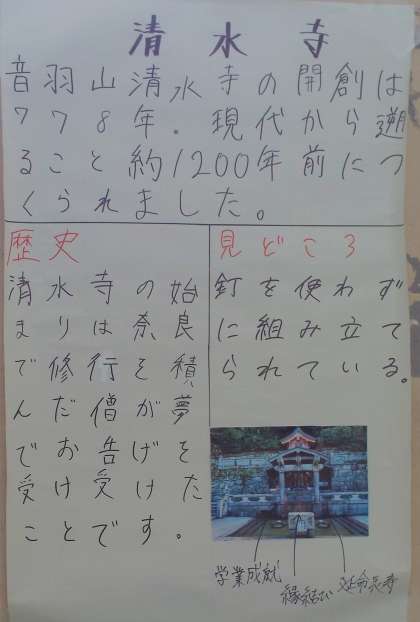 清水寺
音羽山清水寺の開創は
778年．現代から遡
ること約1200年前につ
くられました。
歴史
清水寺の始
まりは奈良
で修行を積
んだ僧が夢
でお告げを
受け受けた
ことです。
見どころ
釘を使わず
に組み立て
られている。
学業成就
縁結び
延命長寿